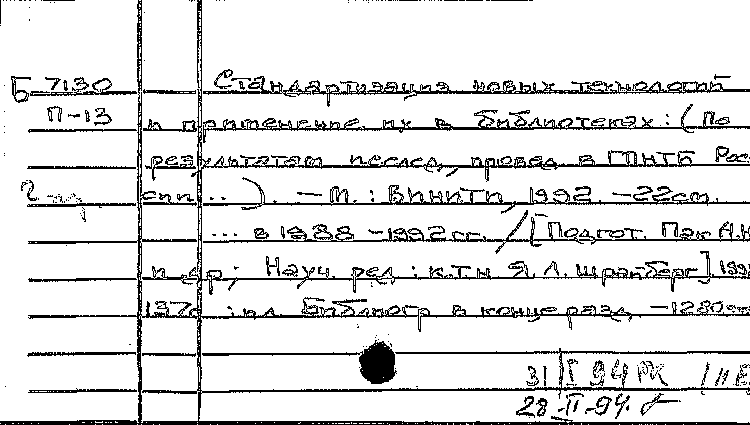 Б 7130 Стандартизация новых технологий
П-13 и применение их в библиотеках: (По
результатам исслед., провед. в ГПНТБ Рос
сии...). — М.: ВИНИТИ, 1992. -22см.
... в 1988 -1992 гг. / [Подгот. Пак А.Н
и др; Науч. ред: к.т.н Я.Л. Шрайберг] 199
137с : ил. Библиогр в конце разд. -1280
31 I 94 РК
28 -II -94.